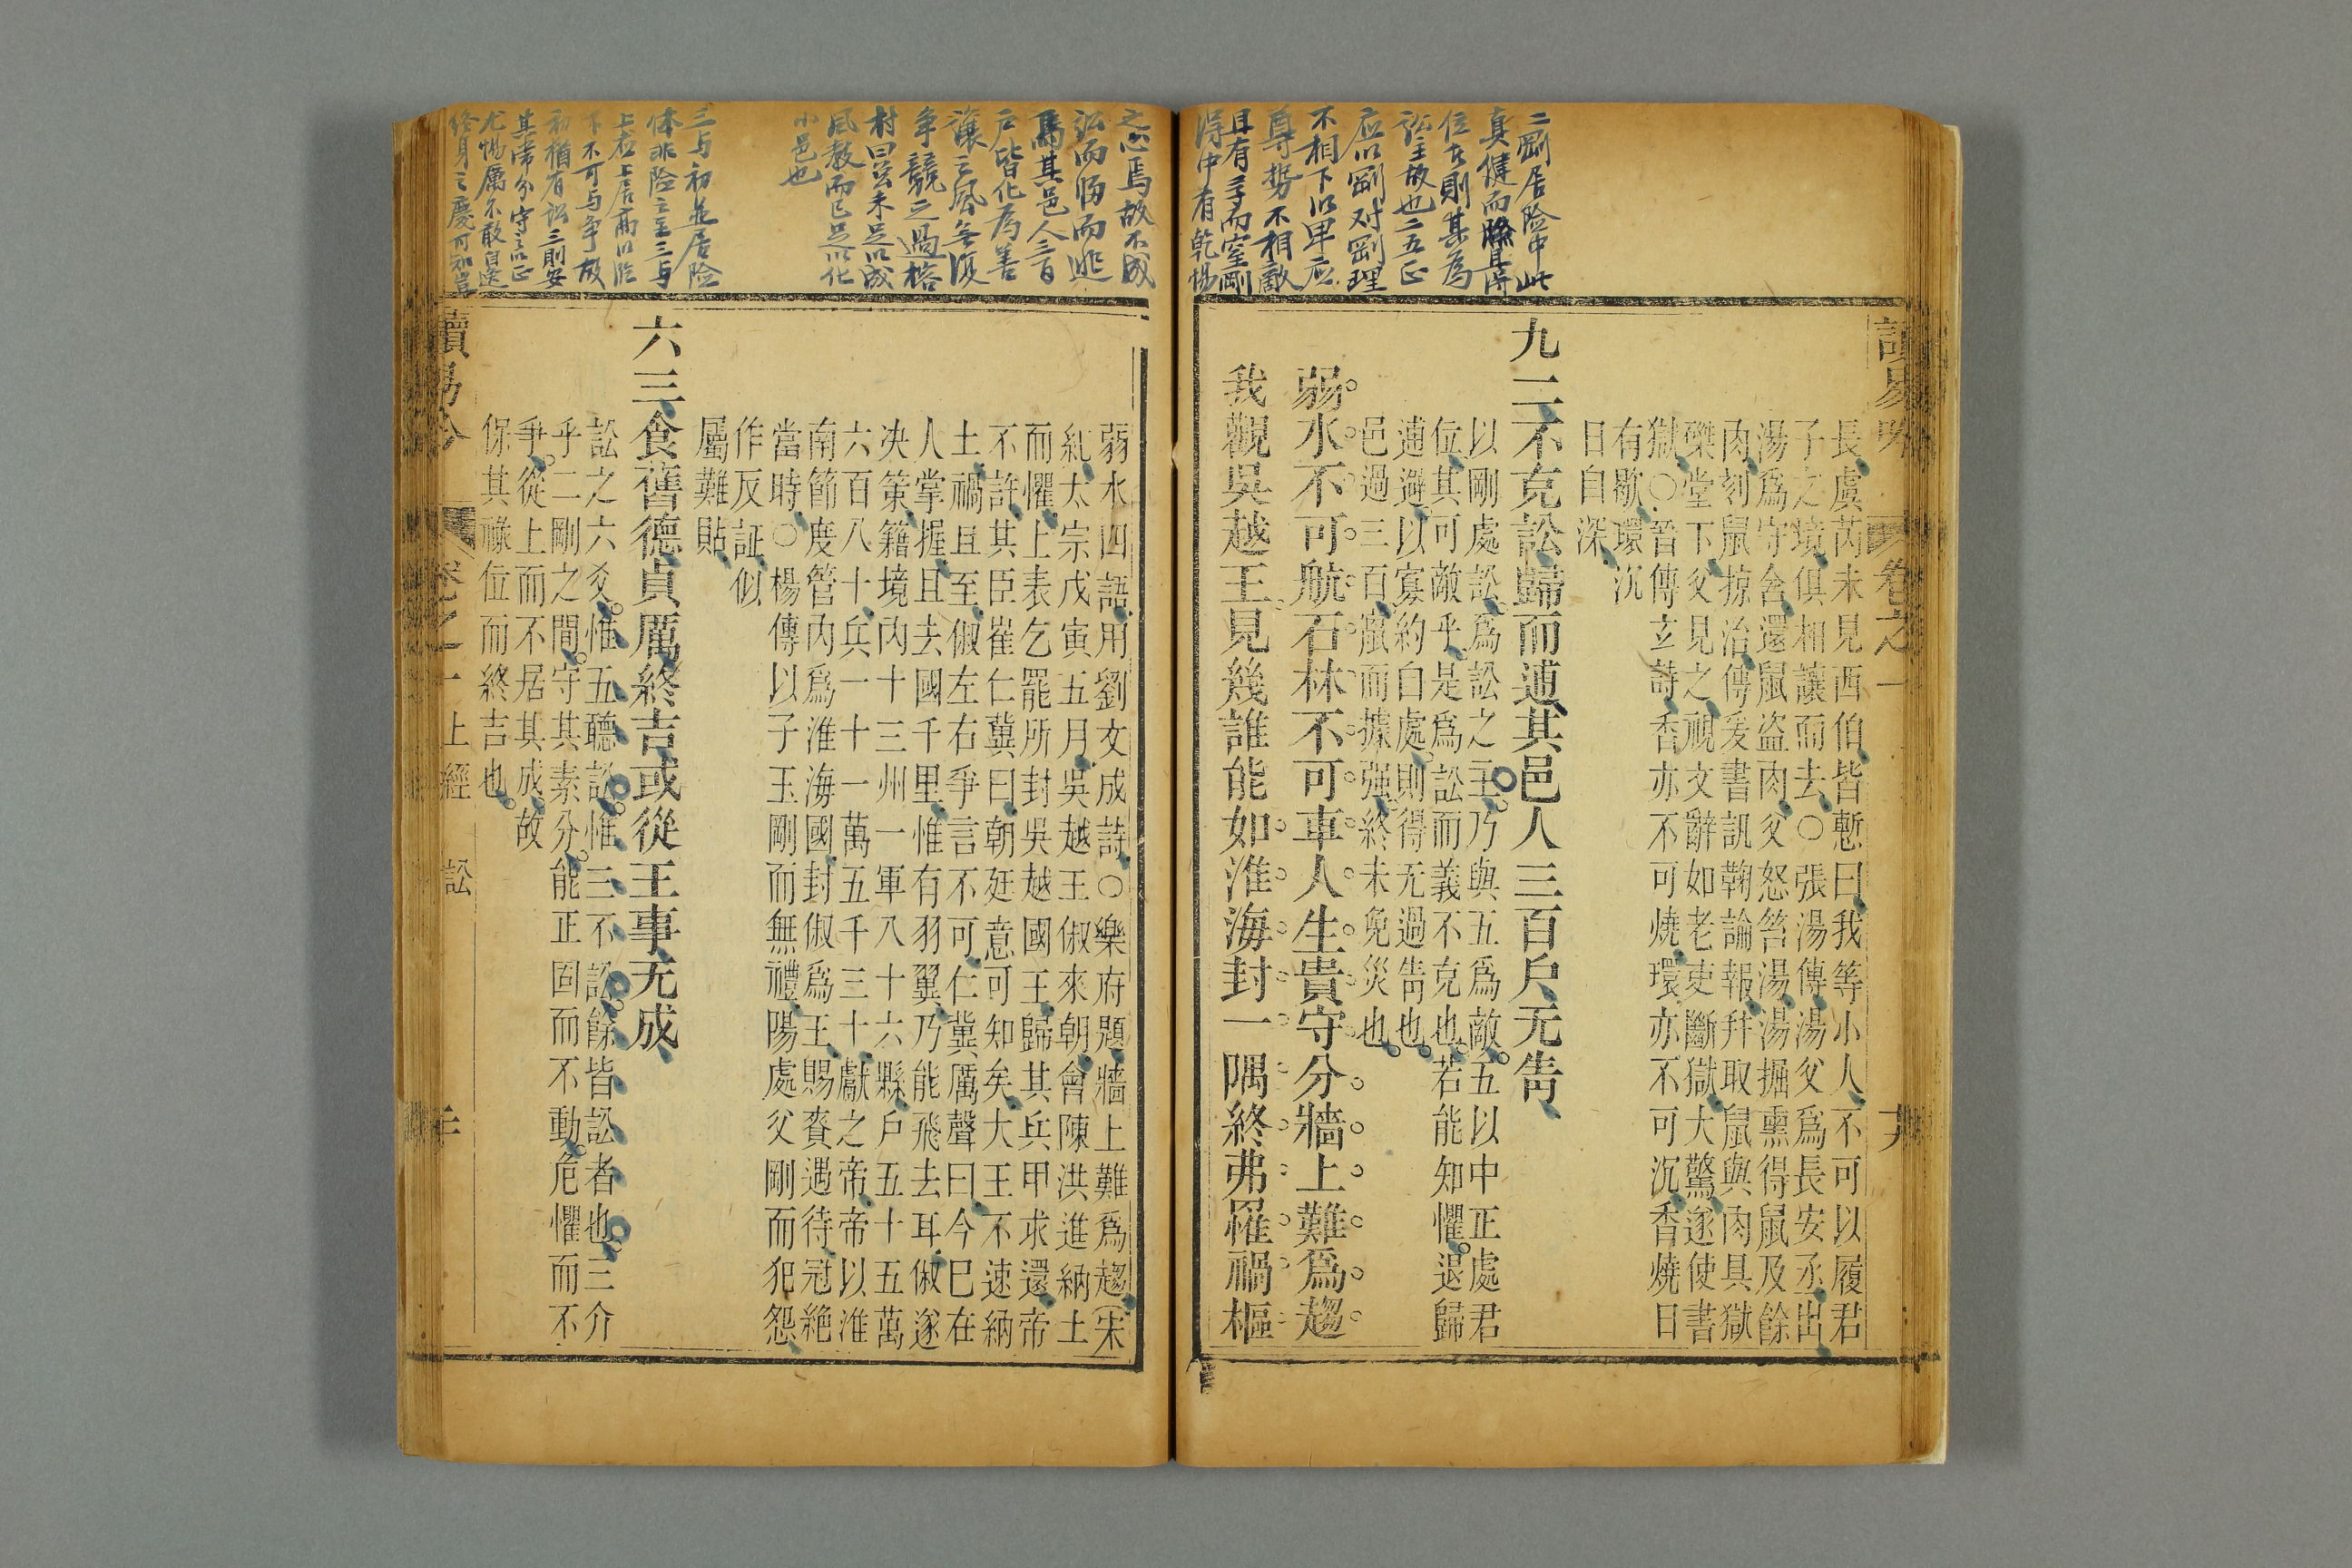 二剛居险中此
真健而險且得
位者則甚為
訟主故也二五正
应以剛对剛理
不相下以卑应
尊势不相敵
且有孚而窒剛
得中有乾惕
卷之一
長虞芮未見西伯皆慙曰我等小人不可以履君
子之境俱相讓而去○張湯傳湯父爲長安丞出
湯爲守舍還鼠盜肉父怒笞湯湯掘熏得鼠及餘
肉刻鼠掠治傳爰書訊鞫論報幷取鼠與肉具獄
磔堂下父見之視文辭如老吏斷獄大驚遂使書
獄○晉傳玄詩香亦不可燒環亦不可沉香燒日
有歇環沉
日自深
九二不克訟歸而逋其邑人三百戶无眚
以剛處訟爲訟之主乃與五爲敵五以中正處君
位其可敵乎是爲訟而義不克也若能知懼退歸
逋避以寡約自處則得无過眚也
邑過三百嵐而據强終未免災也
弱水不可航石林不可車人生貴守分牆上難爲趨
我觀吳越王見幾誰能如淮海封一隅終弗罹禍樞
之心焉故不成
訟而歸而逃
焉其邑人三百
戶皆化為善
讓之風無復
争競之過榕
村曰訟未足以成
風教而已足以化
小邑也
三与初並居险
体非险之主三与
上应上居高以临
下不可与争故
初猶有訟三則安
其常分守之以正
尤惕厲不敢自逸
終身之慶可知豈
弱水四語用劉文成詩○樂府題牆上難爲趨（宋
紀太宗戊寅五月吳越王俶來朝會陳洪進納土
而懼上表乞罷所封吳越國王歸其兵甲求還帝
不許其臣崔仁冀曰朝廷意可知矣大王不速納
土禍且至俶左右爭言不可仁冀厲聲曰今巳在
人掌握且去國千里惟有羽翼乃能飛去耳俶遂
决策籍境内十三州一軍八十六縣戶五十五萬
六百八十兵一十一萬五千三十獻之帝帝以淮
南節度管内爲淮海國封俶爲王賜賚遇待冠絶
當時○楊傳以子玉剛而無禮陽處父剛而犯怨
作反証似
屬難貼
六三食舊德貞厲終吉或從王事无成
訟之六爻惟五聽訟惟三不訟餘皆訟者也三介
乎二剛之間守其素分能正固而不動危懼而不
爭從上而不居其成故
保其祿位而終吉也
卷之一上經 訟